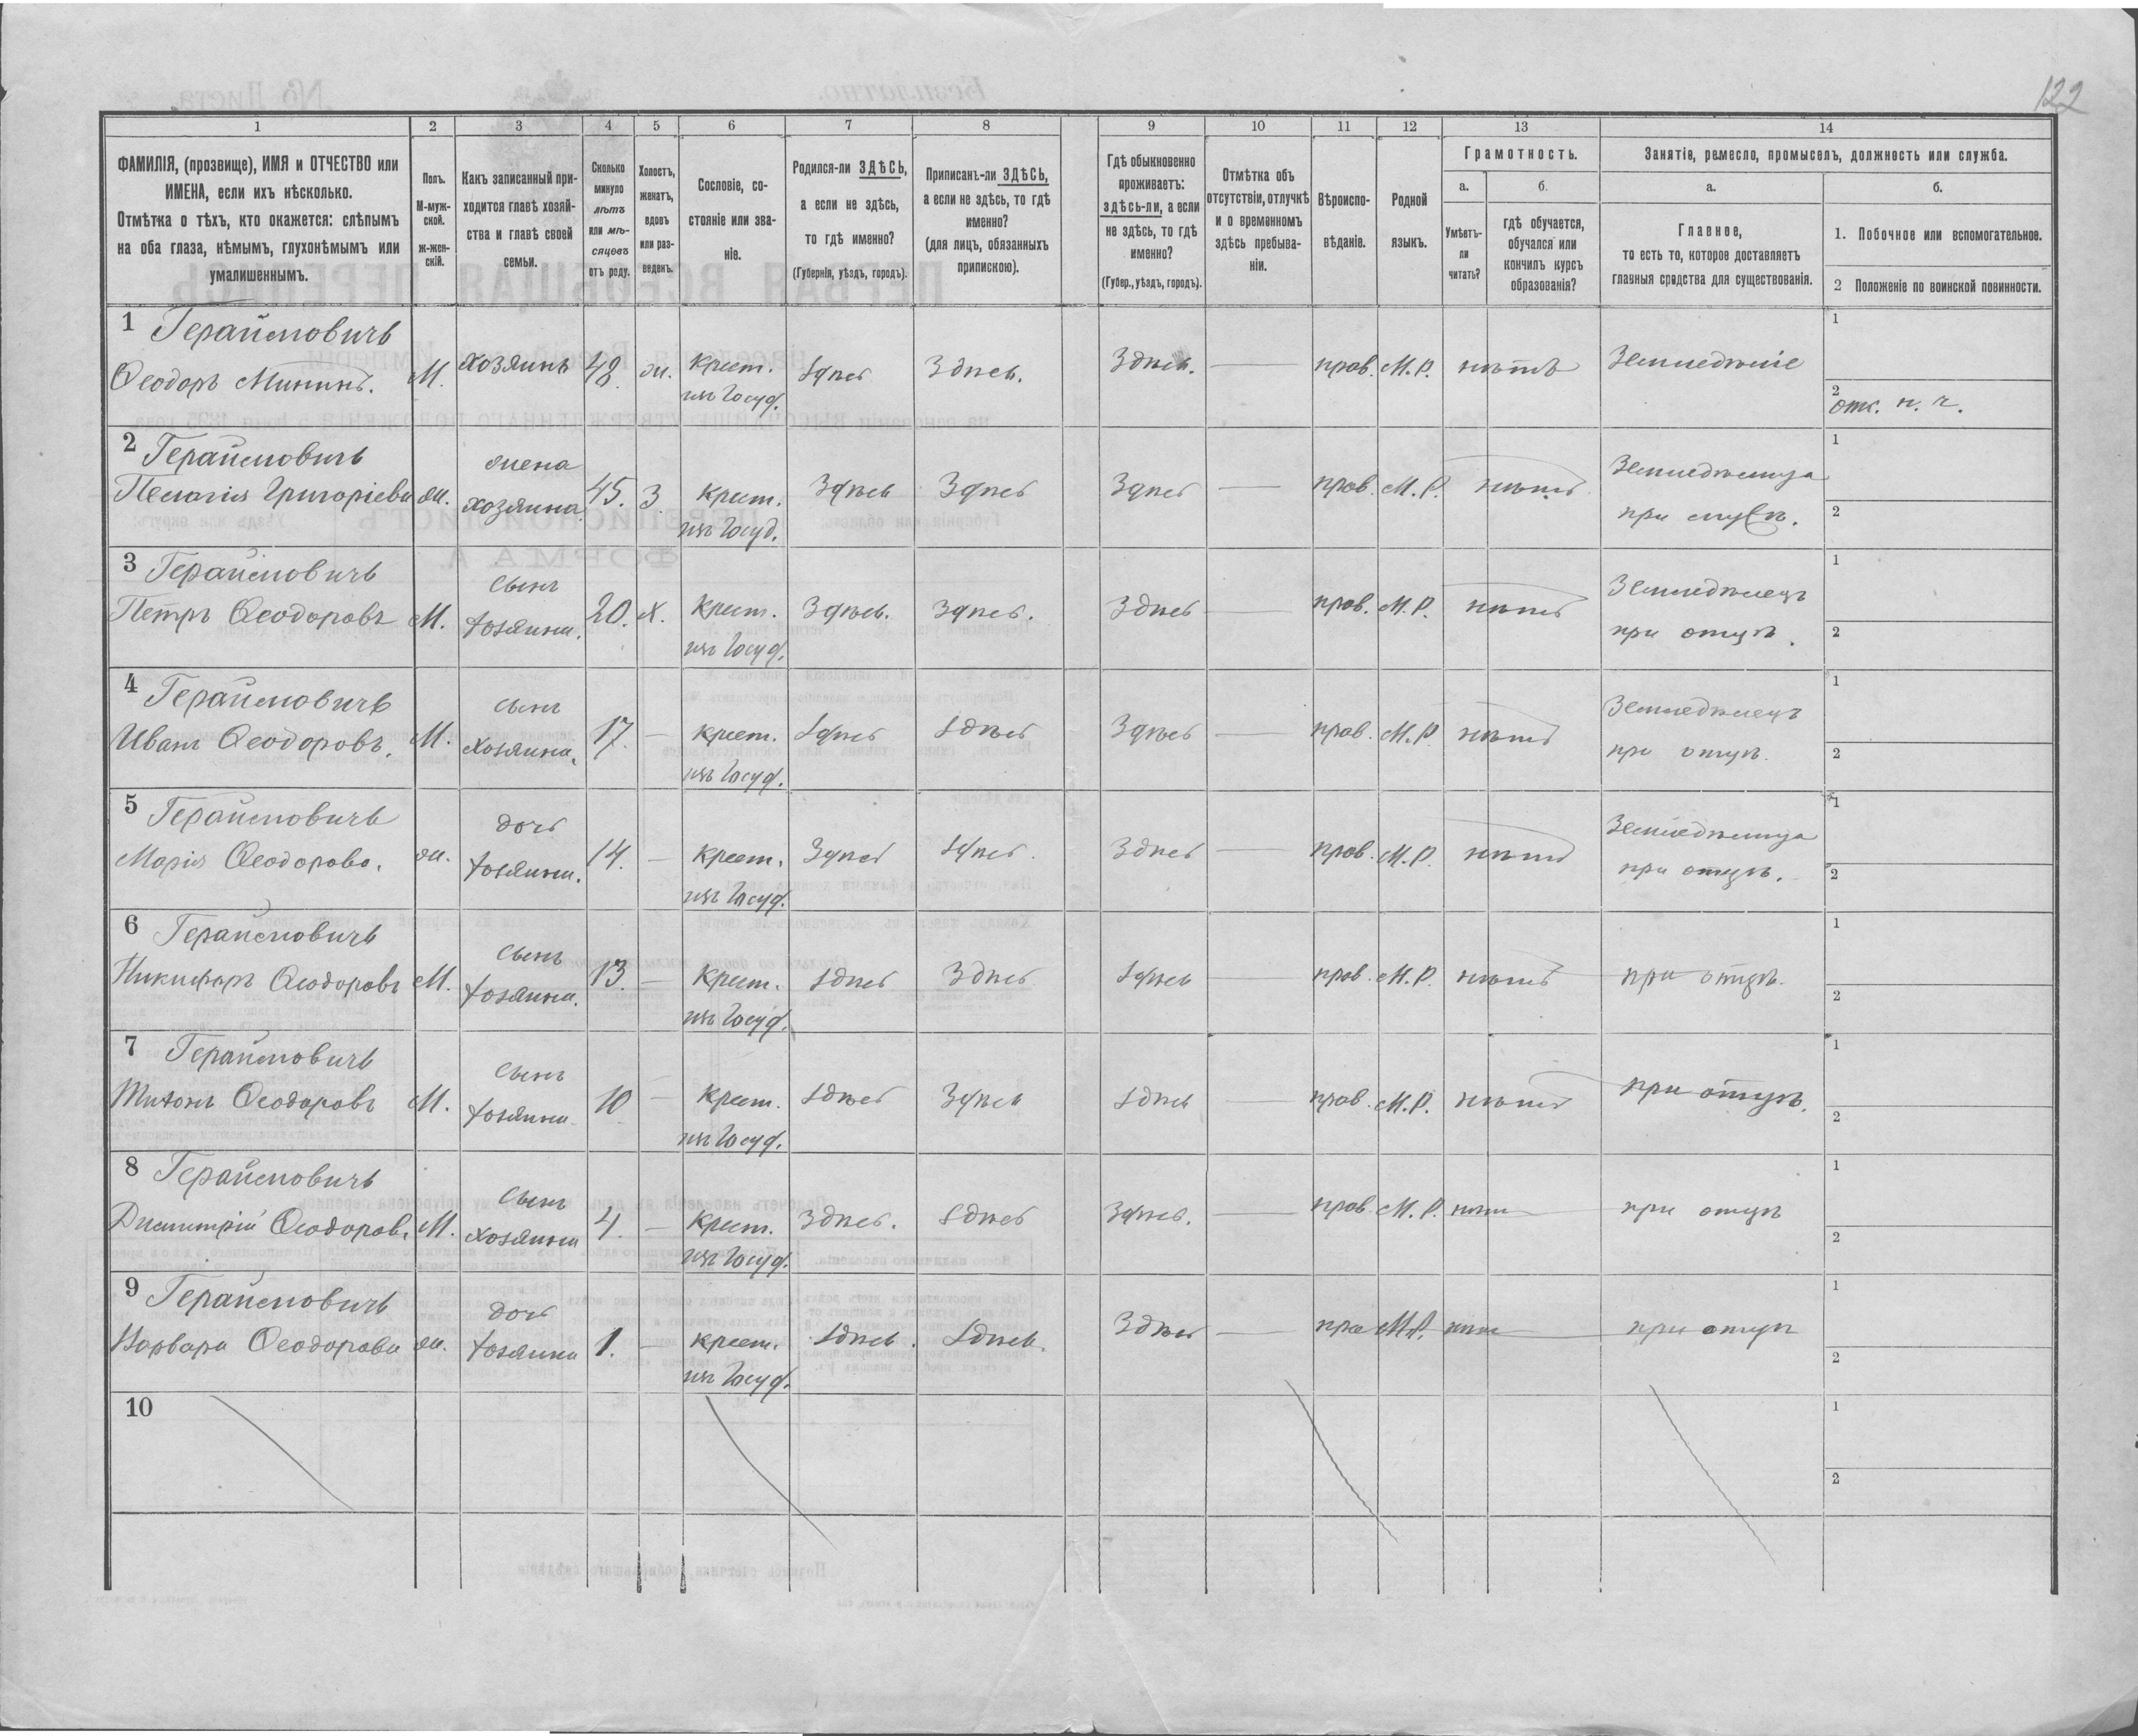 122
1 2 3 4 5 6 7 8 9 10 11 12 13 14
ФАМИЛІЯ, (прозвище), ИМЯ и ОТЧЕСТВО или
ИМЕНА, если ихъ нѣсколько.
Отмѣтка о тѣхъ, кто окажется: слѣпымъ
на оба глаза, нѣмымъ, глухонѣмымъ или
умалишеннымъ.
Полъ.
М-муж-
ской.
ж-жен-
скій.
Какъ записанный при-
ходится главѣ хозяй-
ства и главѣ своей
семьи.
Сколько
минуло
лѣтъ
или мѣ-
сяцевъ
отъ роду.
Холостъ,
женатъ,
вдовъ
или раз-
веденъ.
Сословіе, со-
стояніе или зва-
ніе.
Родился-ли ЗДѢСЬ,
а если не здѣсь,
то гдѣ именно?
(Губернія, уѣздъ, городъ).
Приписанъ-ли ЗДѢСЬ,
а если не здѣсь, то гдѣ
именно?
(для лицъ, обязанныхъ
припискою).
Гдѣ обыкновенно
проживаетъ:
здѣсь-ли, а если
не здѣсь, то гдѣ
именно?
(Губер., уѣздъ, городъ).
Отмѣтка объ
отсутствіи, отлучкѣ
и о временномъ
здѣсь пребыва-
ніи.
Вѣроиспо-
вѣданіе.
Родной
языкъ.
Грамотность.
а.
Умѣетъ-
ли
читать?
б.
гдѣ обучается,
обучался или
кончилъ курсъ
образованія?
Занятіе, ремесло, промыселъ, должность или служба.
а.
Главное,
то есть то, которое доставляетъ
главныя средства для существованія.
б.
1. Побочное или вспомогательное.
2 Положеніе по воинской повинности.
1 Герайсмовичъ
Ѳеодоръ Мининъ. М. хозяинъ 48. ж. крест. здѣсь Здѣсь. Здѣсь. — прав. М.Р. нѣтъ Земледѣліе
изъ Госуд.
1
2 отс. н. ч.
2 Герайсмовичъ
Пелагія Григоріева ж. жена 45. З. крест. Здѣсь Здѣсь Здѣсь — прав. М.Р. нѣтъ Земледѣлица
хозяина изъ Госуд. при мужѣ.
1
2
3 Герайсмовичъ
Петръ Ѳеодоровъ М. сынъ 20. х. крест. Здѣсь. Здѣсь. Здѣсь — прав. М.Р. нѣтъ Земледѣлецъ
хозяина. изъ Госуд. при отцѣ.
1
2
4 Герайсмовичъ
Иванъ Ѳеодоровъ. М. сынъ 17. — крест. здѣсь здѣсь Здѣсь — прав. М.Р. нѣтъ Земледѣлецъ
хозяина. изъ Госуд. при отцѣ.
1
2
5 Герайсмовичъ
Марія Ѳеодорова. ж. дочь 14. — крест. Здѣсь здѣсь. Здѣсь — прав. М.Р. нѣтъ Земледѣлица
хозяина. изъ Госуд. при отцѣ.
1
2
6 Герайсмовичъ
Никифоръ Ѳеодоровъ М. сынъ 13. — крест. здѣсь Здѣсь здѣсь — прав. М.Р. нѣтъ при отцѣ.
хозяина. изъ Госуд.
1
2
7 Герайсмовичъ
Ѳеодоровъ М. сынъ 10 — крест. здѣсь Здѣсь здѣсь — прав. М.Р. нѣтъ при отцѣ.
хозяина изъ Госуд.
1
2
8 Герайсмовичъ
Димитрій Ѳеодоров. М. сынъ 4. — крест. Здѣсь. здѣсь Здѣсь. — прав. М.Р. при отцѣ
хозяина изъ Госуд.
1
2
9 Герайсмовичъ
Варвара Ѳеодорова ж. дочь 1. — крест. здѣсь. здѣсь. Здѣсь — М.Р. при отцѣ
хозяина изъ Госуд.
1
2
10
1
2